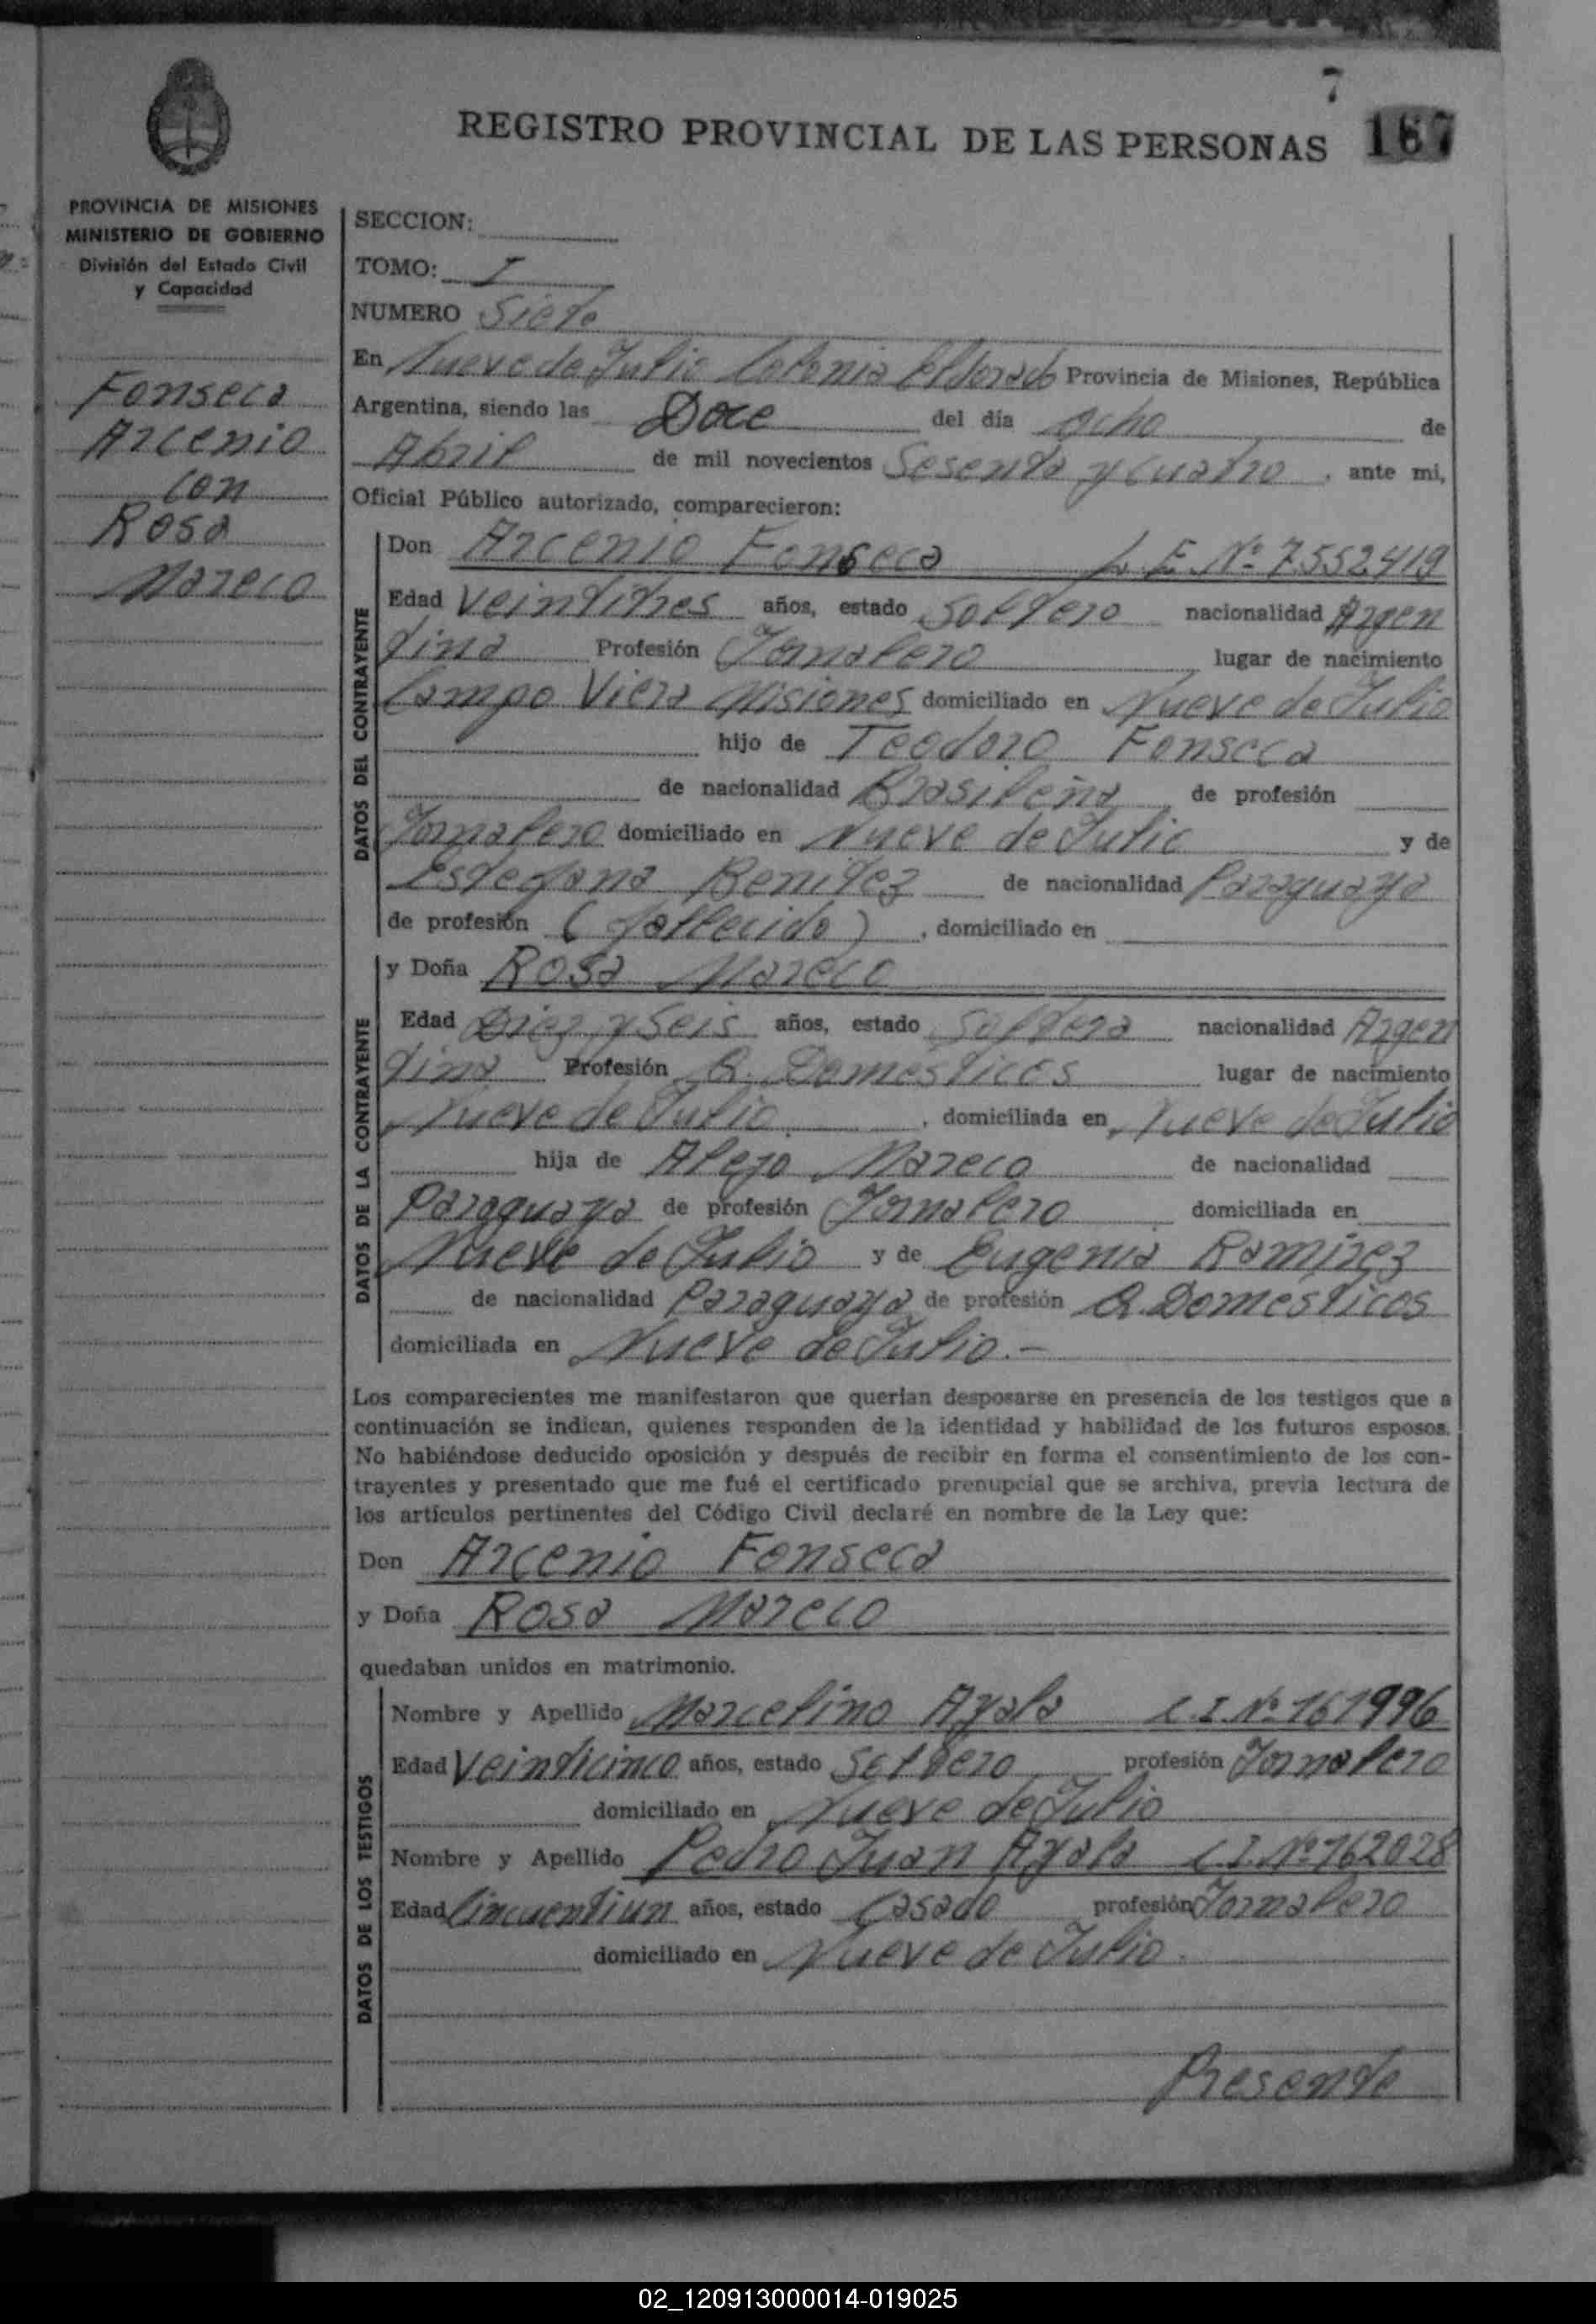 7
REGISTRO PROVINCIAL DE LAS PERSONAS 167
PROVINCIA DE MISIONES
MINISTERIO DE GOBIERNO
División del Estado Civil
y Capacidad
Fonseca
Arcenio
con
Rosa
Mareco
SECCION:
TOMO: I
NUMERO Siete
En Nueve de Julio Colonia Eldorado Provincia de Misiones, República
Argentina, siendo las Doce del día Ocho de
Abril de mil novecientos Sesenta y Cuatro, ante mi,
Oficial Público autorizado, comparecieron:
DATOS DEL CONTRAYENTE
Don Arcenio Fonseca L. E. Nº 7.552419
Edad Veintitres años, estado Soltero nacionalidad Argen
tina Profesión Jornalero lugar de nacimiento
Campo Viera Misiones domiciliado en Nueve de Julio
hijo de Teodoro Fonseca
de nacionalidad Brasileña de profesión
Jornalero domiciliado en Nueve de Julio y de
Estefana Benitez de nacionalidad Paraguaya
de profesión (fallecido), domiciliado en
DATOS DE LA CONTRAYENTE
y Doña Rosa Mareco
Edad Diez y Seis años, estado Soltera nacionalidad Argen
tina Profesión Q. Domésticos lugar de nacimiento
Nueve de Julio, domiciliada en Nueve de Julio
hija de Alejo Mareco de nacionalidad
Paraguaya de profesión Jornalero domiciliada en
Nueve de Julio y de Eugenia Ramirez
de nacionalidad Paraguaya de profesión Q. Domesticos
domiciliada en Nueve de Julio.-
Los comparecientes me manifestaron que querían desposarse en presencia de los testigos que a
continuación se indican, quienes responden de la identidad y habilidad de los futuros esposos.
No habiéndose deducido oposición y después de recibir en forma el consentimiento de los con-
trayentes y presentado que me fué el certificado prenupcial que se archiva, previa lectura de
los artículos pertinentes del Código Civil declaré en nombre de la Ley que:
Don Arcenio Fonseca
y Doña Rosa Mareco
quedaban unidos en matrimonio.
DATOS DE LOS TESTIGOS
Nombre y Apellido Marcelino Ayala C.I. Nº 161996
Edad Veinticinco años, estado Soltero profesión Jornalero
domiciliado en Nueve de Julio
Nombre y Apellido Pedro Juan Ayala C.I. Nº 162028
Edad Cincuentiun años, estado Casado profesión Jornalero
domiciliado en Nueve de Julio.
Presente
02_120913000014-019025